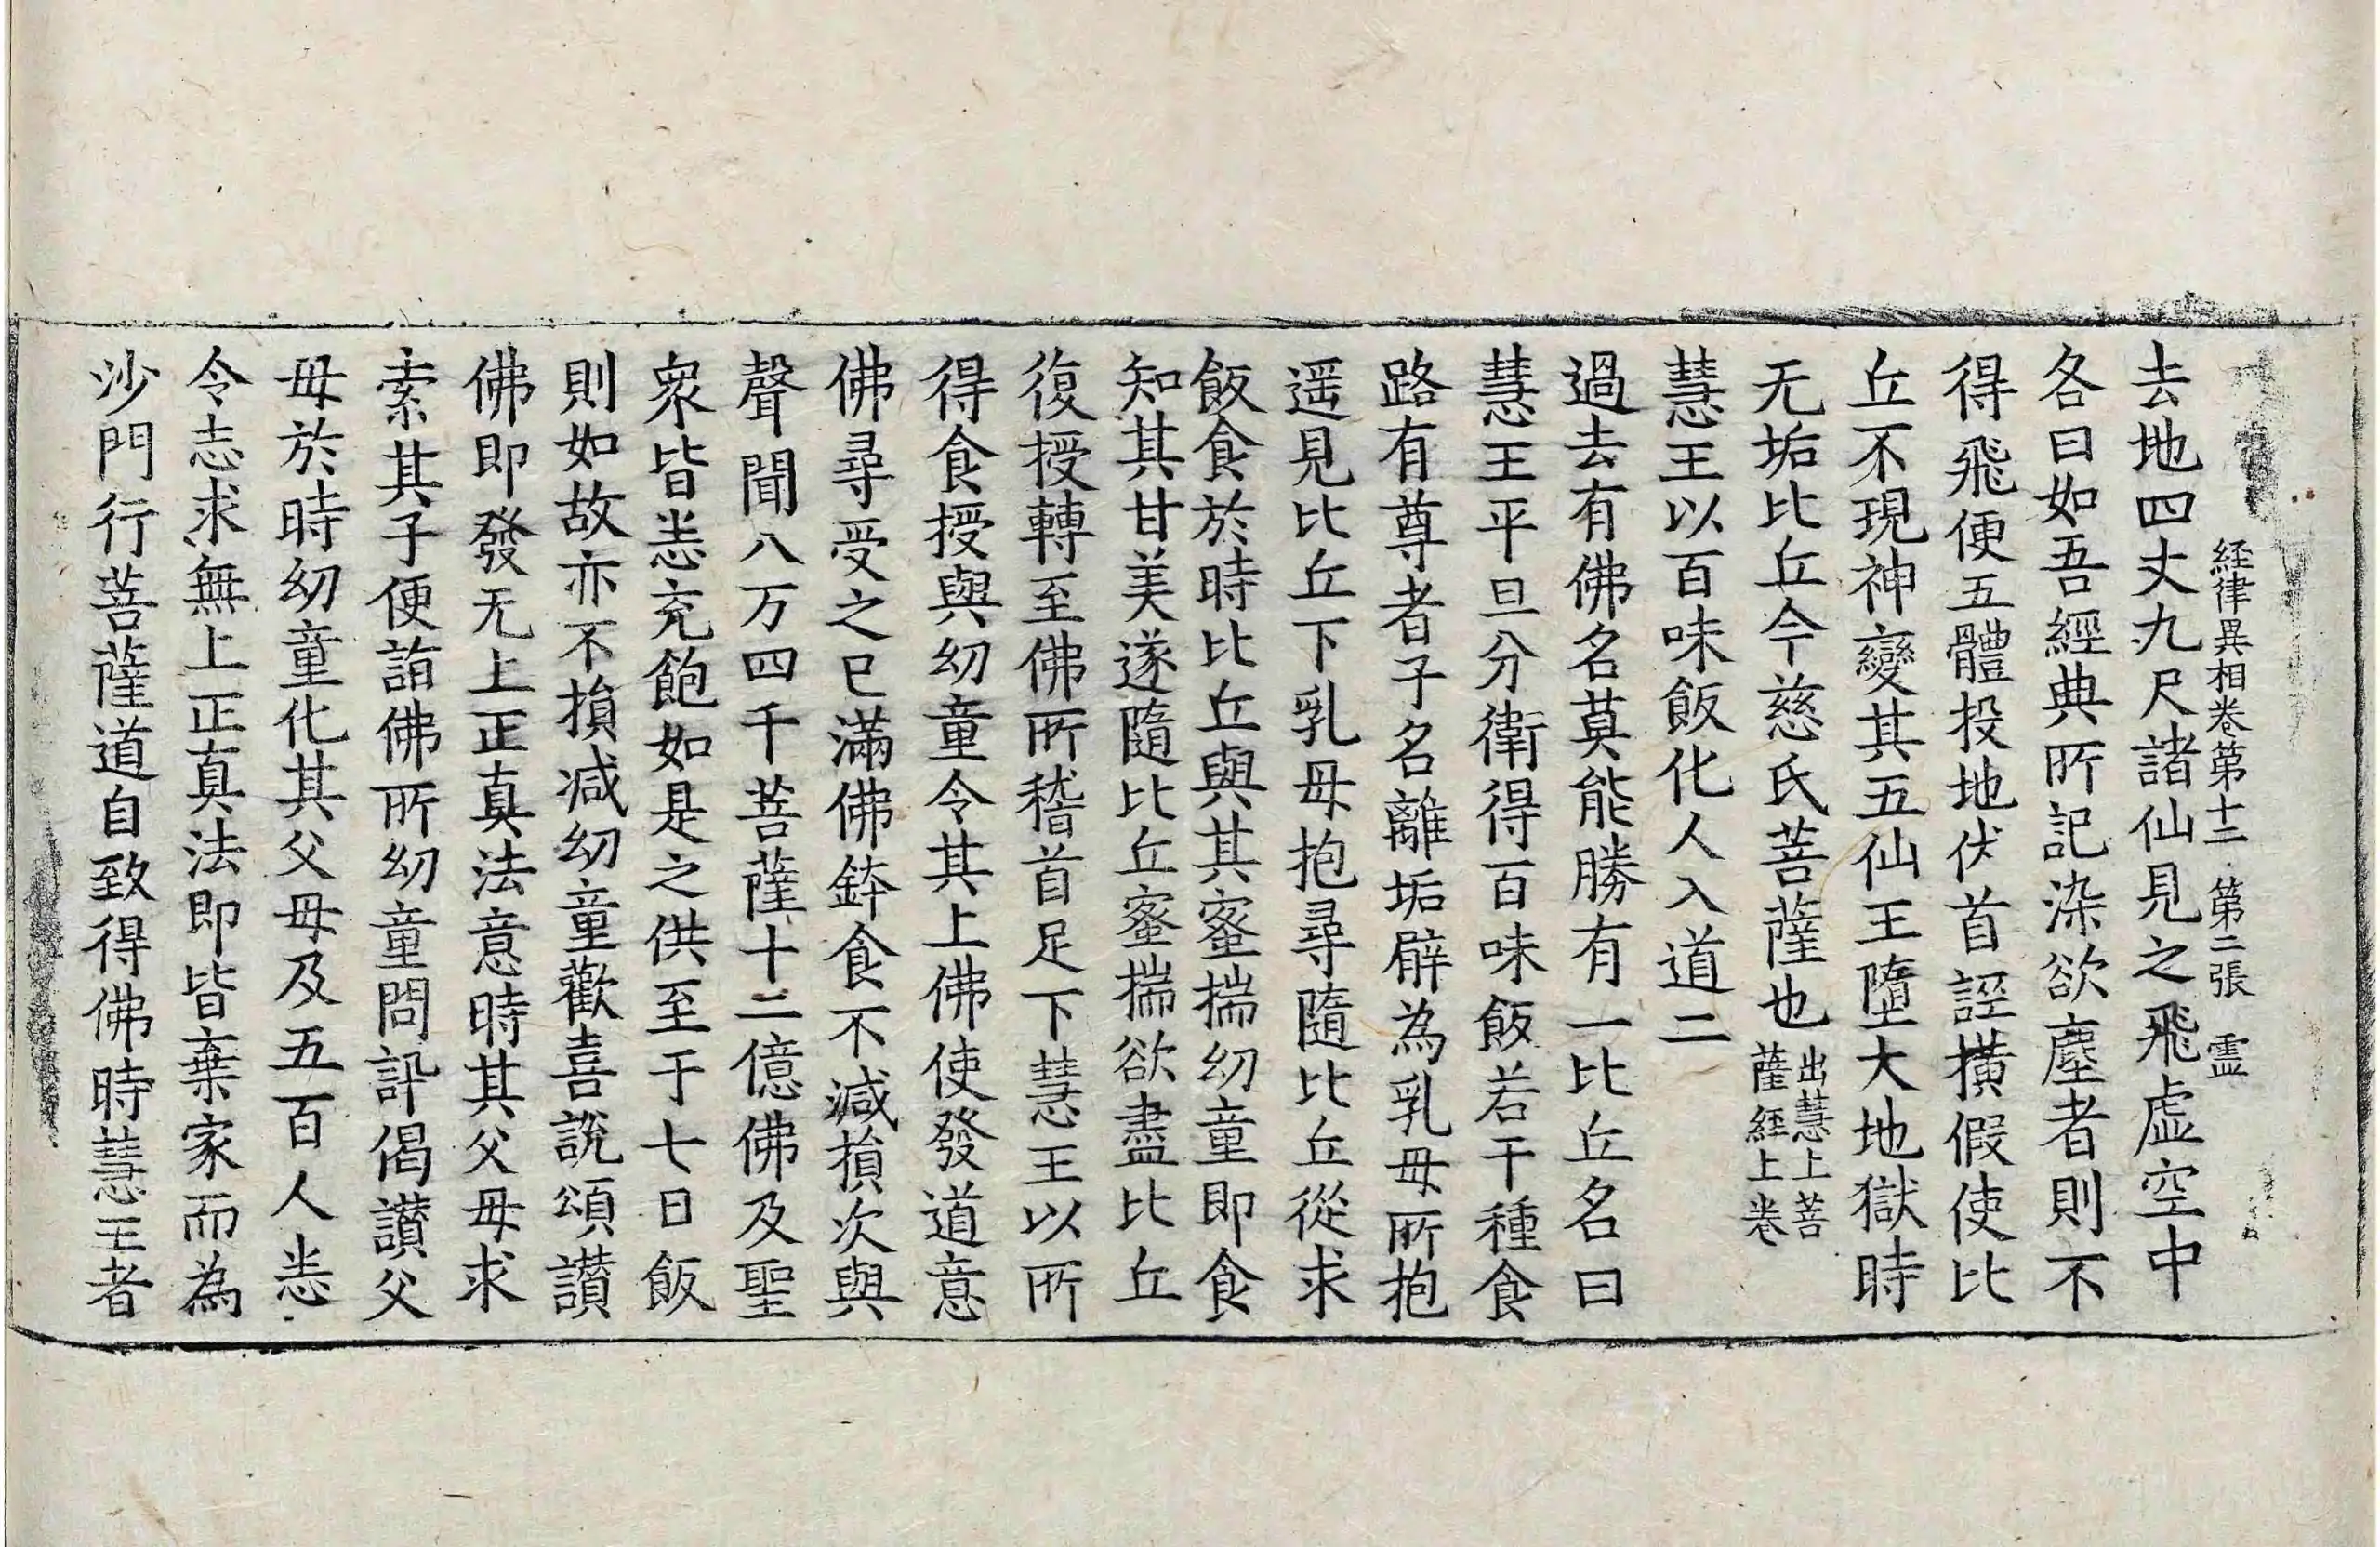 経律異相卷第十二 第二張 霊
去地四丈九尺諸仙見之飛虛空中
各曰如吾經典所記染欲塵者則不
得飛便五體投地伏首誣横假使比
丘不現神變其五仙王墮大地獄時
无垢比丘今慈氏菩薩也出慧上菩薩経上卷
慧王以百味飯化人入道二
過去有佛名莫能勝有一比丘名曰
慧王平旦分衛得百味飯若干種食
路有尊者子名離垢辟為乳母所抱
遥見比丘下乳母抱尋隨比丘從求
飯食於時比丘與其蜜揣幼童即食
知其甘美遂隨比丘蜜揣欲盡比丘
復授轉至佛所稽首足下慧王以所
得食授與幼童令其上佛使發道意
佛尋受之已滿佛鉢食不減損次與
聲聞八万四千菩薩十二億佛及聖
衆皆悉充飽如是之供至于七日飯
則如故亦不損减幼童歡喜說頌讃
佛即發无上正真法意時其父母求
索其子便詣佛所幼童問訊偈讃父
母於時幼童化其父母及五百人悉
令志求無上正真法即皆棄家而為
沙門行菩薩道自致得佛時慧王者